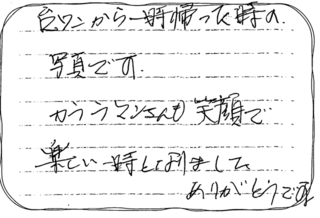 台ワンから一時帰った時の
写真です.
カララマンさんも笑顔で
楽しい一時となりました。
ありがとうです